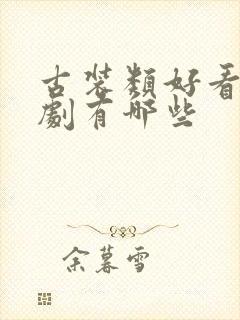 古装类好看
剧有哪些
余暮雪